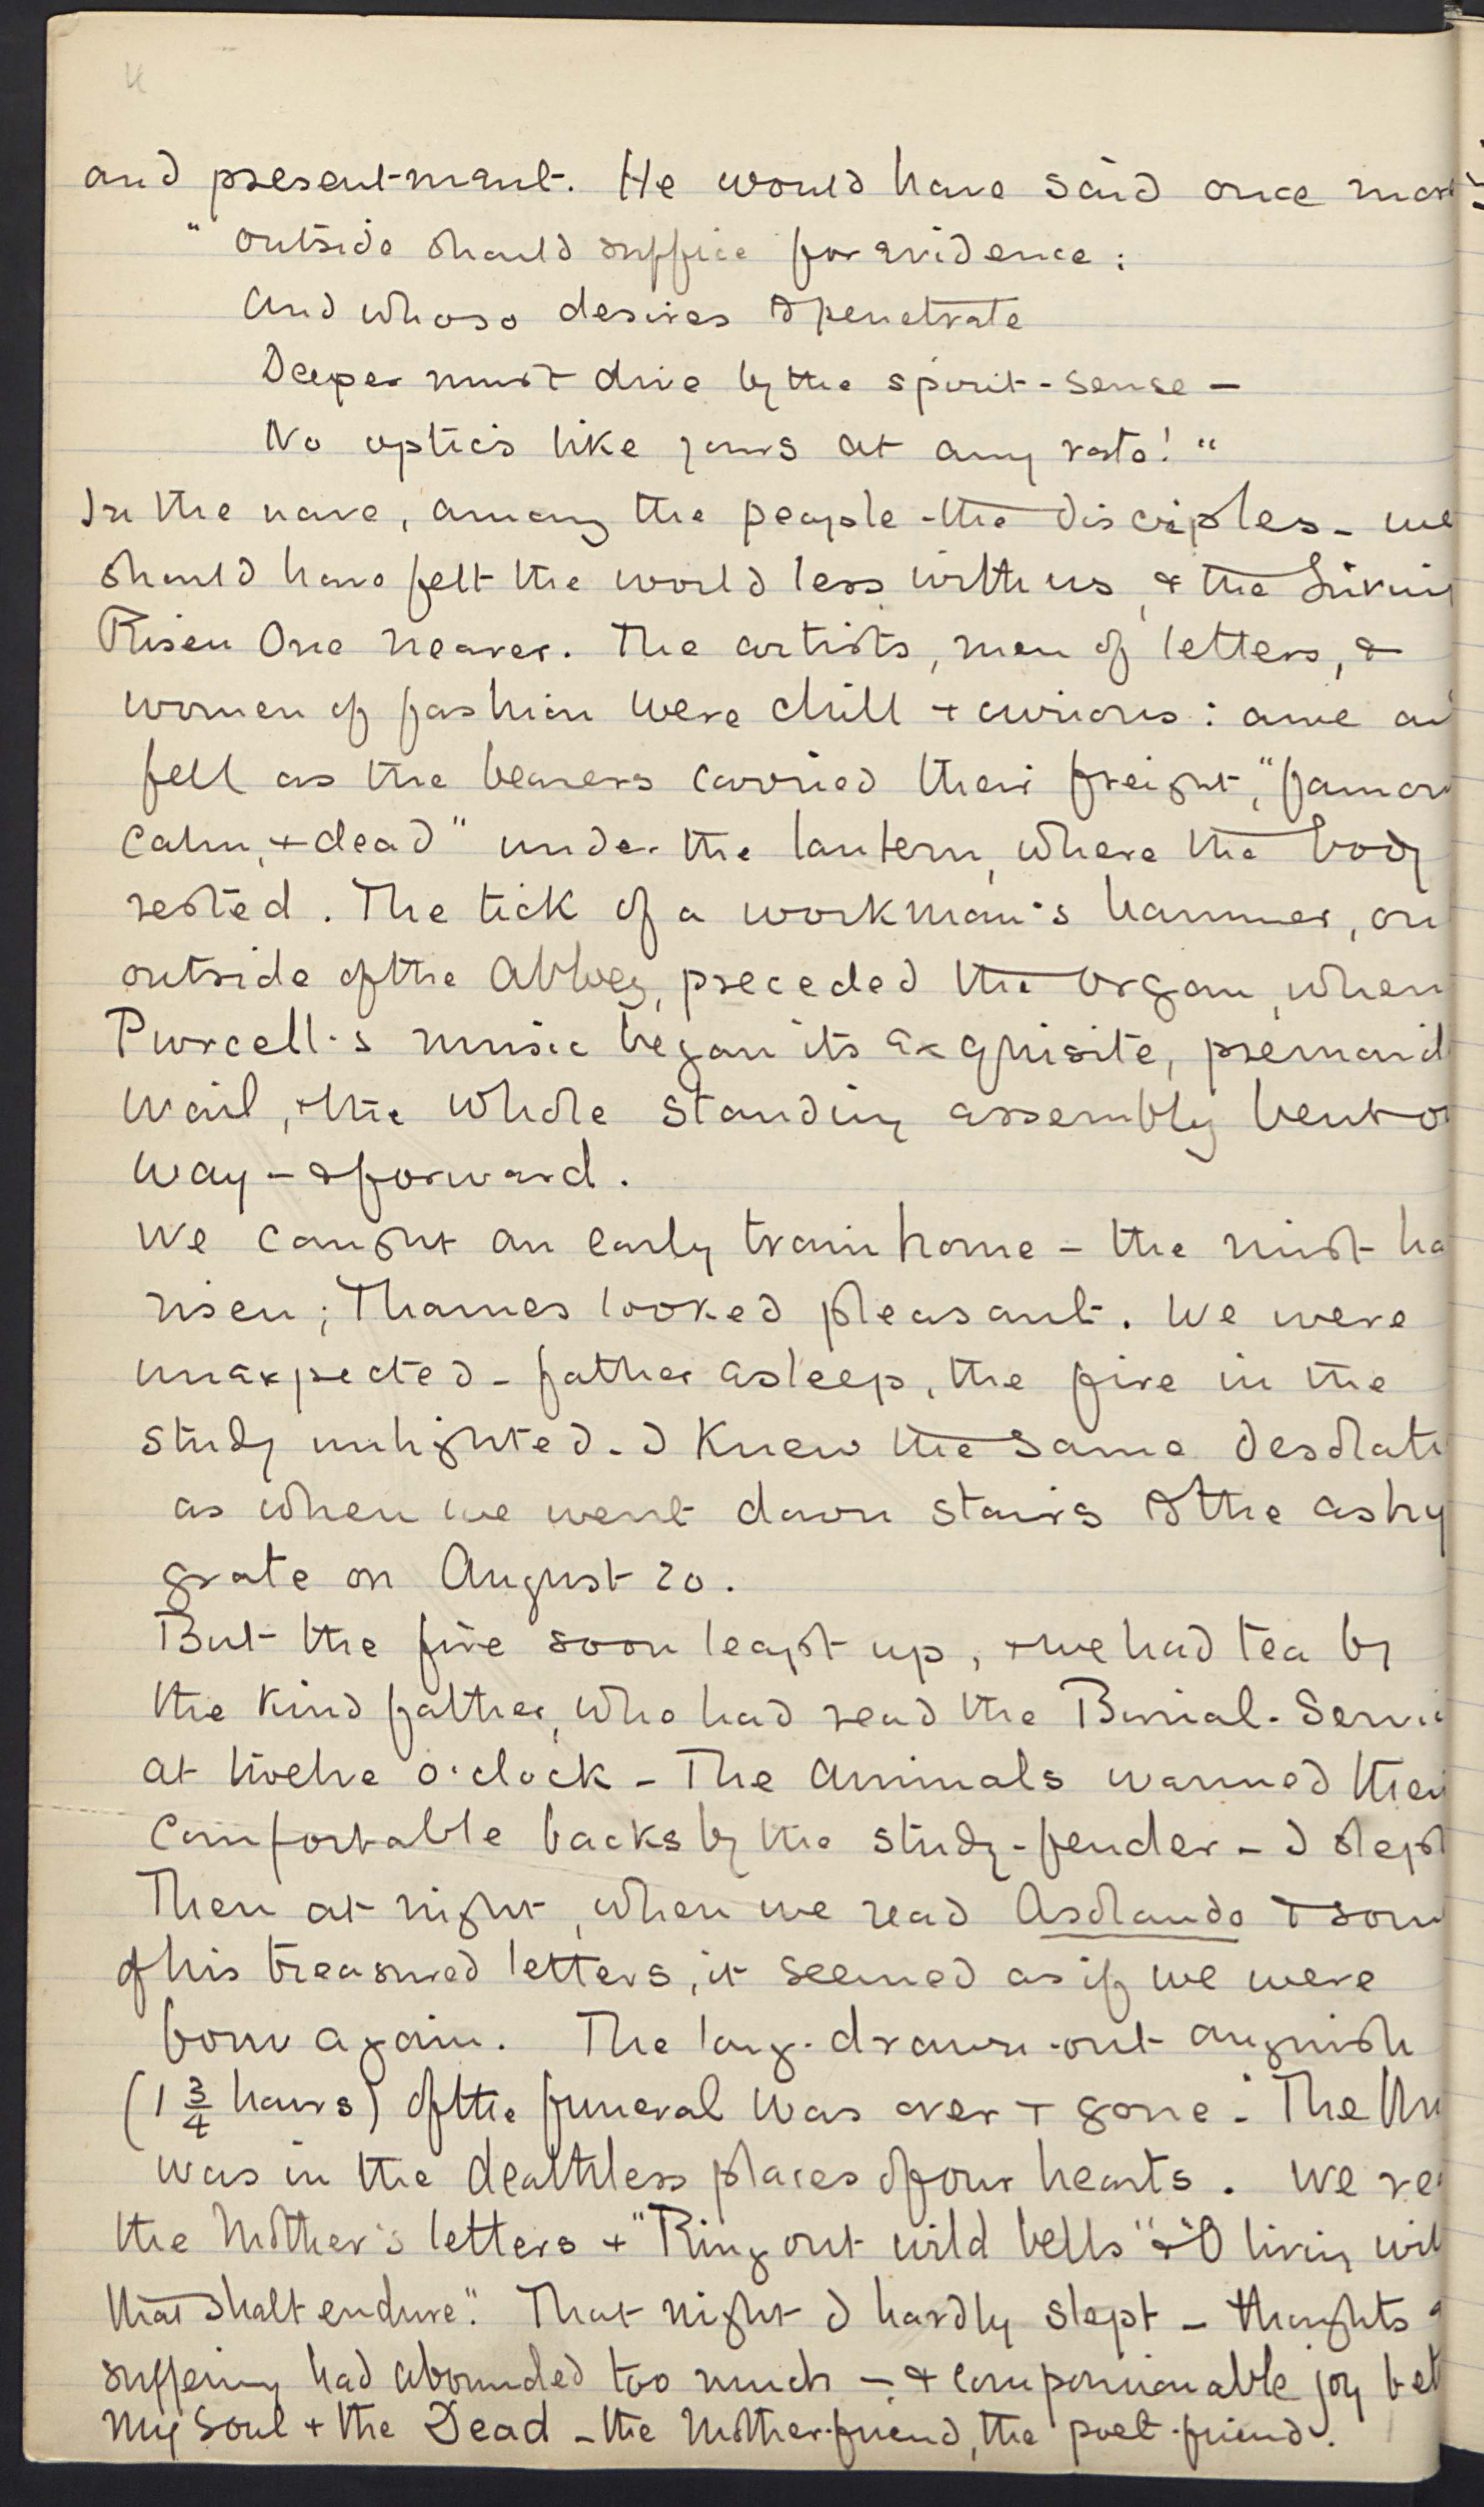 and presentment. He would have said once more
" Outside should suffice for evidence:
And whoso desires to penetrate
Deeper must dive by the spirit-sense —
No optics like yours at any rate! "
In the nave, among the people - the disciples - we
should have felt the world less with us, & the Living
Risen One nearer. The artists, men of letters, &
women of fashion were chill + curious: awe
fell as the bearers carried their freight, "famous
calm, + dead" under the lantern, where the body
rested. The tick of a workman's hammer, on
outside of the Abbey, preceded the organ, when
Purcell's music began its exquisite,
wail, + the whole standing assembly bent
way - & forward.
We caught an early train home - the mist ha
risen; Thames looked pleasant. We were
unexpected - father asleep, the fire in the
study unlighted - I knew the same desolati
as when we went down stairs to the ashy
grate on August 20.
But the fire soon leapt up, + we had tea by
the kind father, who had read the Burial-Servi
at twelve o'clock - The animals warmed thei
comfortable backs by the study-fender - I slept
Then at night, when we read Asolando + som
of his treasured letters, it seemed as if we were
born again. The long-drawn-out anguish
(1 3/4 hours) of the funeral was over + gone - The
was in the deathless places of our hearts. We re
the Mother's letters + "Ring out wild bells" & "O living wil
that shalt endure". That night I hardly slept - thoughts
suffering had abounded too much - & companionable joy bet
my soul + the Dead - the Mother-friend, the poet-friend.